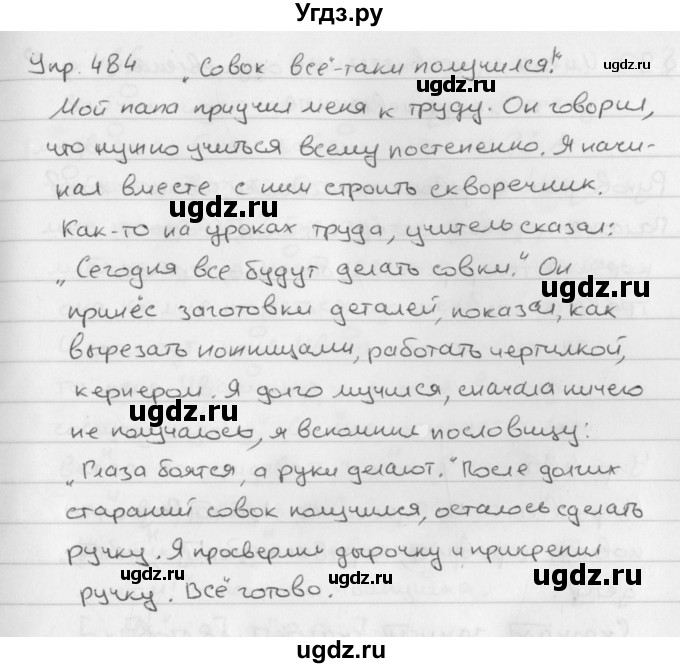 Угдз.ру
Упр. 484 „Совок всё-таки получился!“
ugdz.ru
ugdz.ru
Мой папа приучил меня к труду. Он говорил,
что нужно учиться всему постепенно. Я начи-
нал вместе с ним строить скворечник.
ugdz.ru
Как-то на уроках труда, учитель сказал:
„Сегодня все будут делать совки.“ Он
ugdz.ru
принёс заготовки деталей, показал, как
вырезать ножницами, работать чертилкой,
кернером. Я долго мучился, сначала ничего
ugdz.ru
не получалось, я вспомнил пословицу:
„Глаза боятся, а руки делают.“ После долгих
стараний совок получился, осталось сделать
ручку. Я просверлил дырочку и прикрепил
ugdz.ru
ugdz.ru
ugdz.ru
ручку. Всё готово.
ugdz.ru